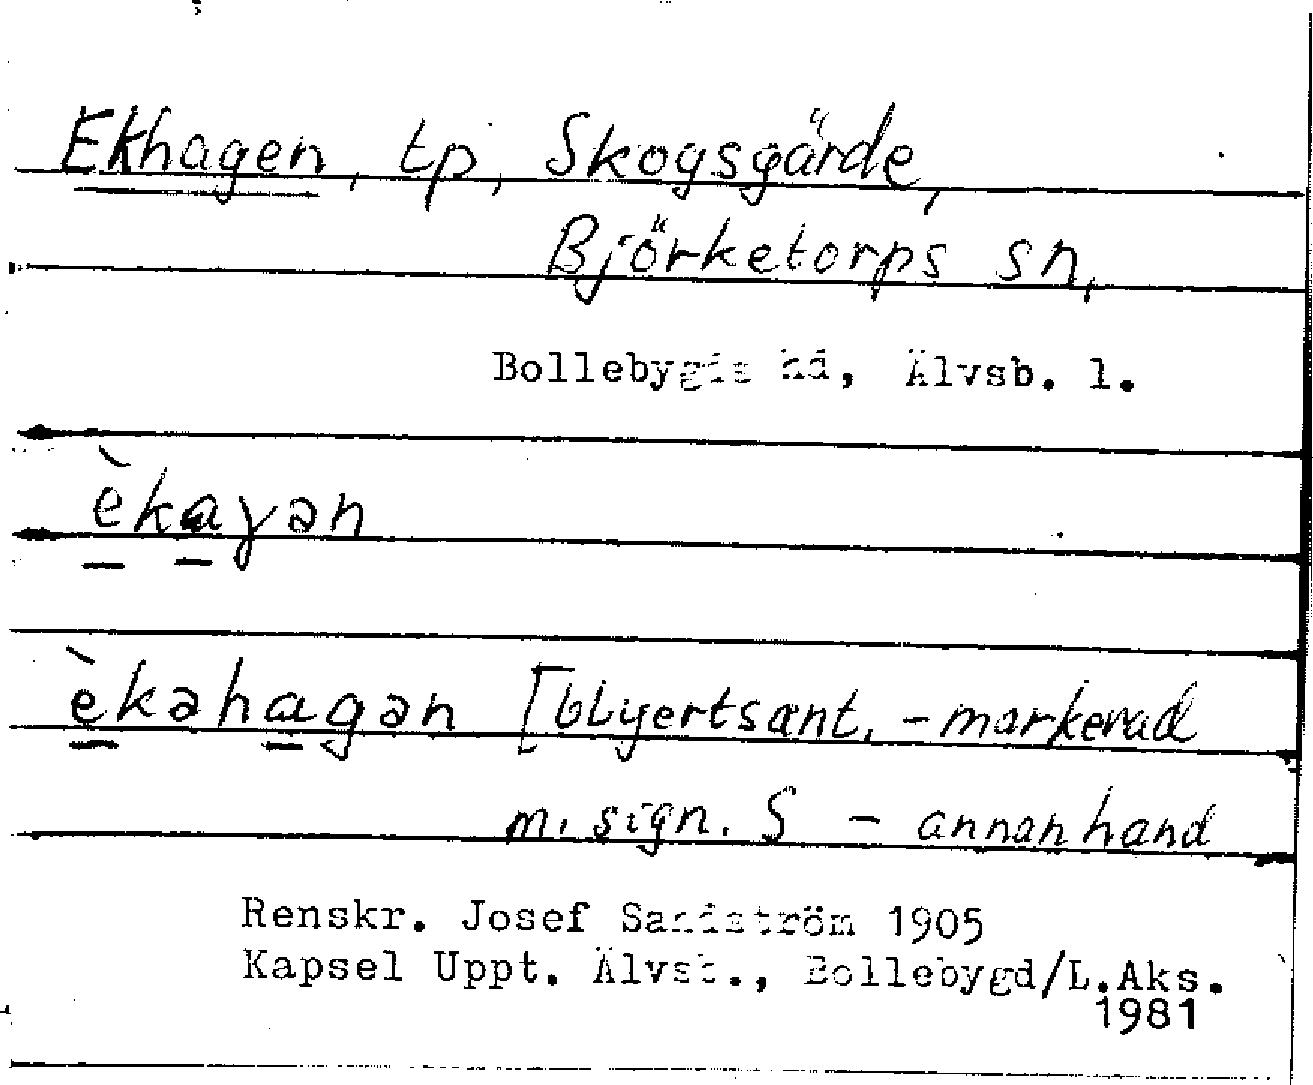 Ekhagen, tp, Skogsgärde,
Björketorps sn,
Bollebygds hd, Älvsb. l.
èkaγən
èkəhagən [blyertsant. - markerad
m. sign. S - annan hand
Renskr. Josef Sandström 1905
Kapsel Uppt. Älvsb., Bollebygd/L.Aks.
1981